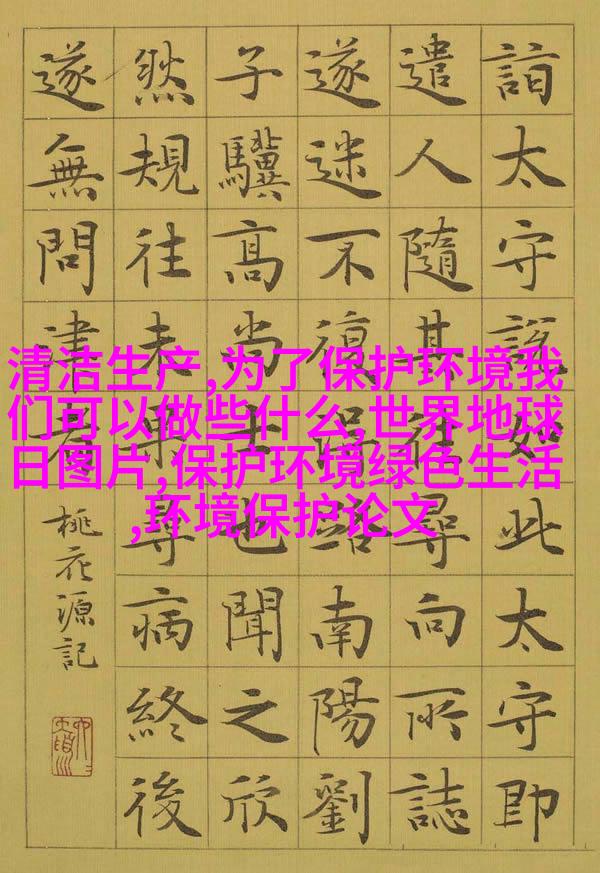 詣太守説如此太守即
遣人隨其往尋向所誌
遂迷不復得路南陽劉
子驥高尚士也聞之欣
然規往未果尋病終後
遂無問津者
桃花源記
清洁生产,为了保护环境我
们可以做些什么,世界地球
日图片,保护环境绿色生活
,环境保护论文